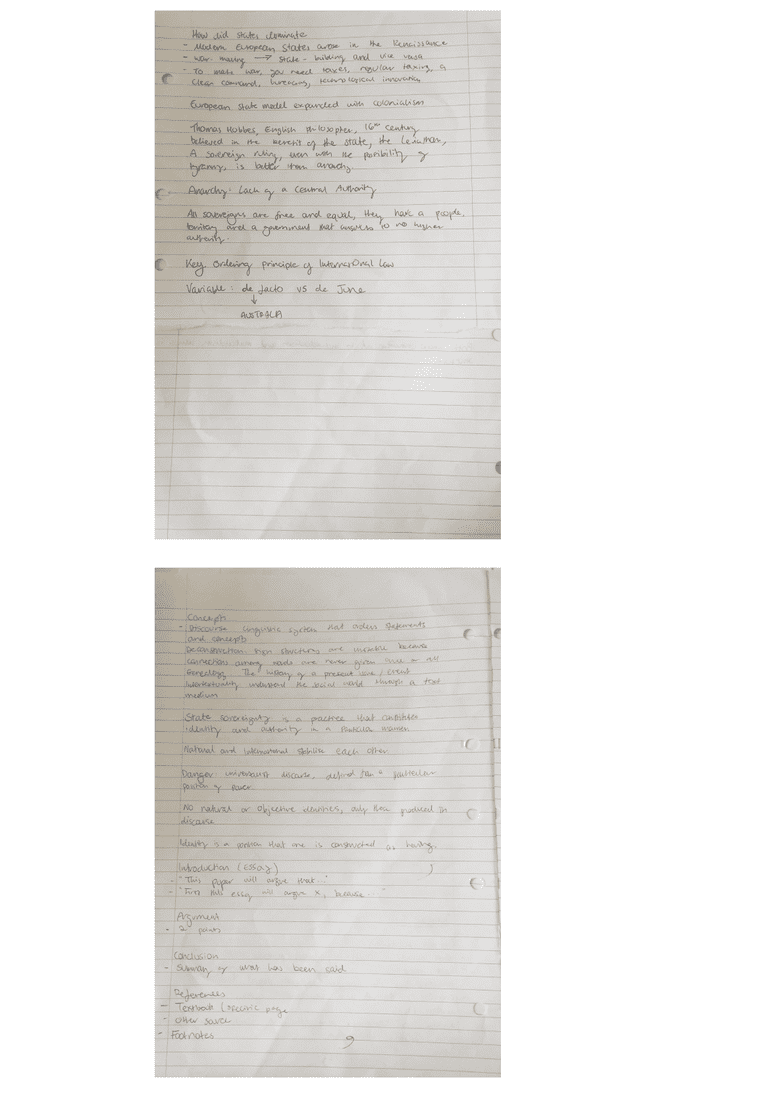 How did states dominate
- Modern European States arose in the Renaissance
- war making → State-building and vice versa
- To make war, you need taxes, regular taxing, a
clear command, bureaucracy, technological innovation
European state model expanded with colonialism
Thomas Hobbes, English Philosopher, 16th century
believed in the benefit of the state, the Leviathan,
A sovereign ruling, even with the possibility of
tyranny, is better than anarchy.
Anarchy: Lack of a Central Authority
All sovereigns are free and equal, they have a people,
territory and a government that answers to no higher
authority.
Key Ordering principle of International Law
Variable: de facto vs de Jure
↓
AUSTRALIA
Concepts
- Discourse linguistic system that orders statements
and concepts
Deconstruction sign structures are unstable because
connection among words are never given once or all
Genealogy The history of a present issue / event
Intertextuality understand the social world through a text
medium
State sovereignty is a practice that constitutes
identity and authority in a particular manner
National and International each other
Danger universalist discourse, defined from a particular
position of power.
No natural or objective identities, only those produced in
discourse
Identity is a position that one is constructed as having.
Introduction (Essay)
- "This paper will argue that..."
- "First this essay will argue x, because..."
Argument
- 2 points
Conclusion
- Summary of what has been said
References
- Textbook (specific page
- other source
- Footnotes